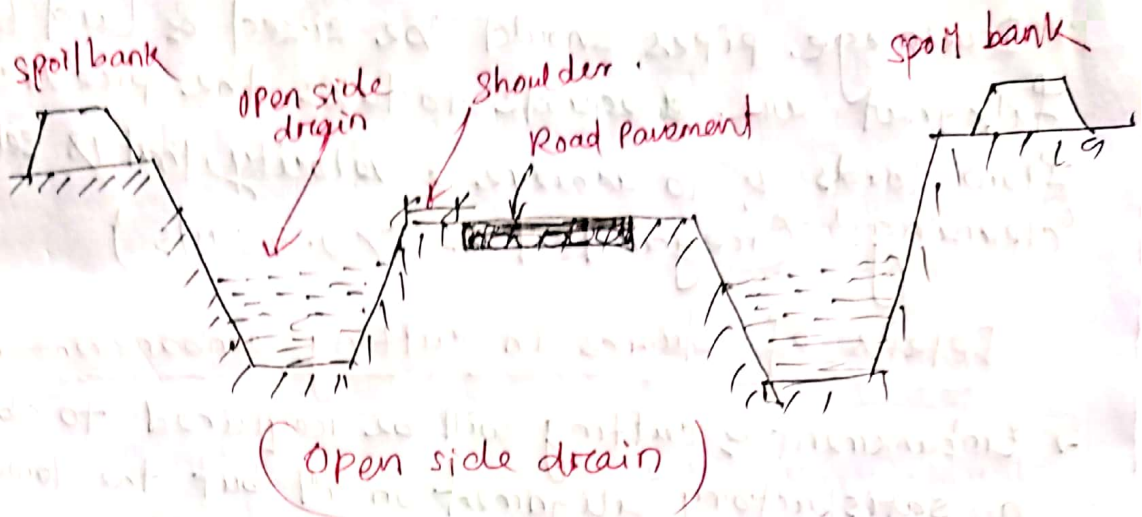 spoil bank
open side
drain
Shoulder .
Road Pavement
spoil bank
(Open side drain)